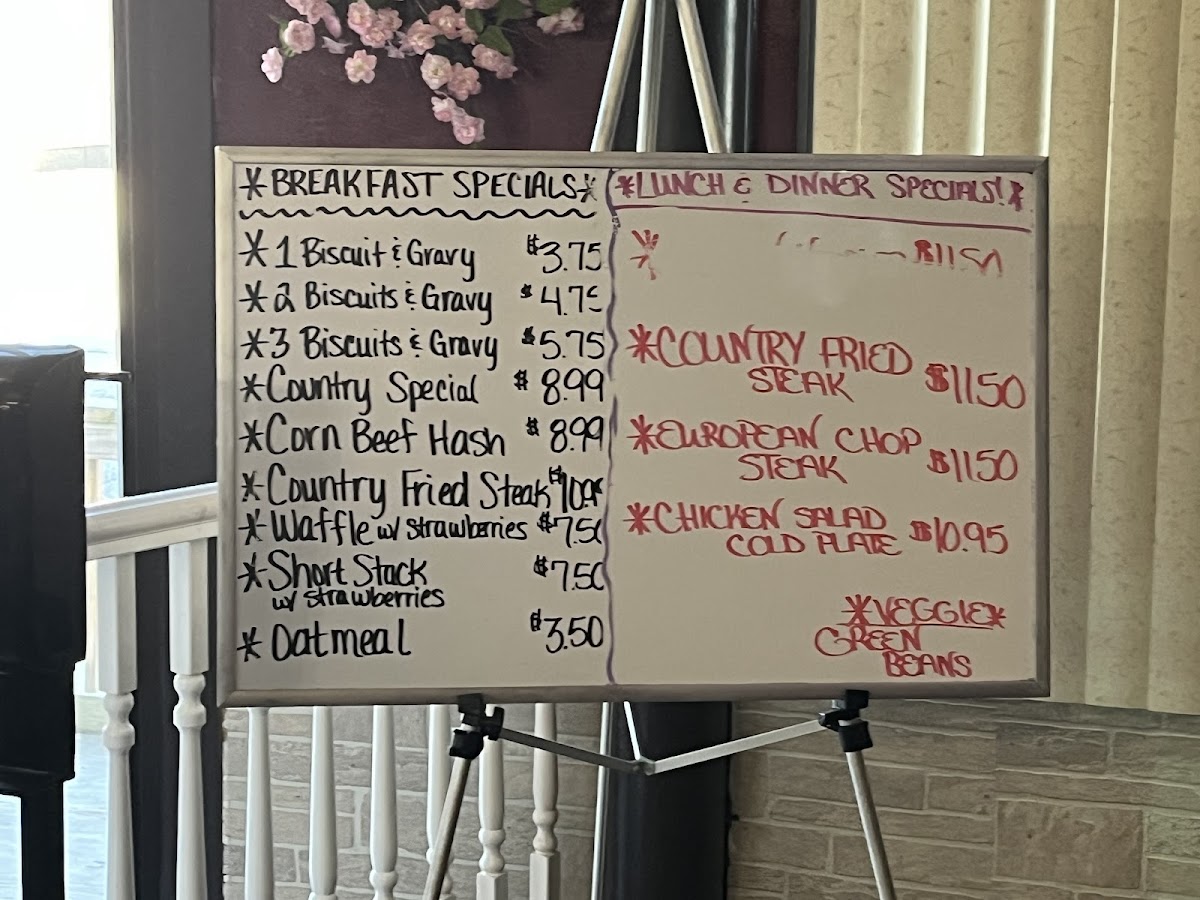 *BREAKFAST SPECIALS*
*1 Biscuit & Gravy $3.75
*2 Biscuits & Gravy $4.75
*3 Biscuits & Gravy $5.75
*Country Special $8.99
*Corn Beef Hash $8.99
*Country Fried Steak
*Waffle w/ strawberries $7.50
*Short Stack $7.50
w/ strawberries
*Oatmeal $3.50
*LUNCH & DINNER SPECIALS!*
* $1150
*COUNTRY FRIED
STEAK $1150
*EUROPEAN CHOP
STEAK $1150
*CHICKEN SALAD
COLD PLATE $10.95
*VEGGIE*
GREEN
BEANS